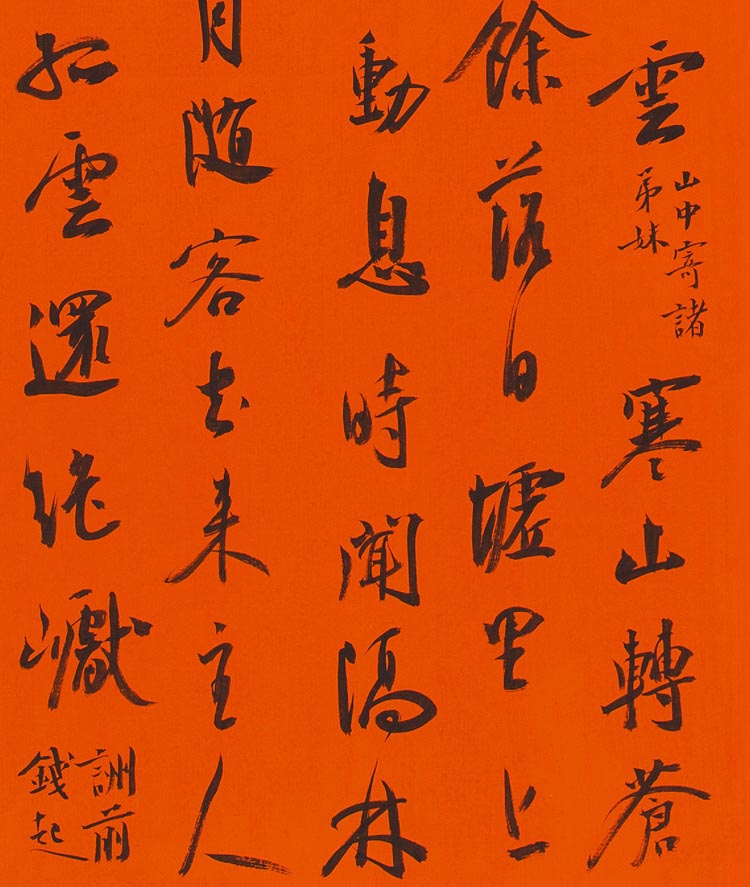 雲
山中寄諸
弟妹
寒山轉蒼
餘落日墟里上
動息時聞隔林
月随客去来主人
孤雲還絕巘
詶前
錢起